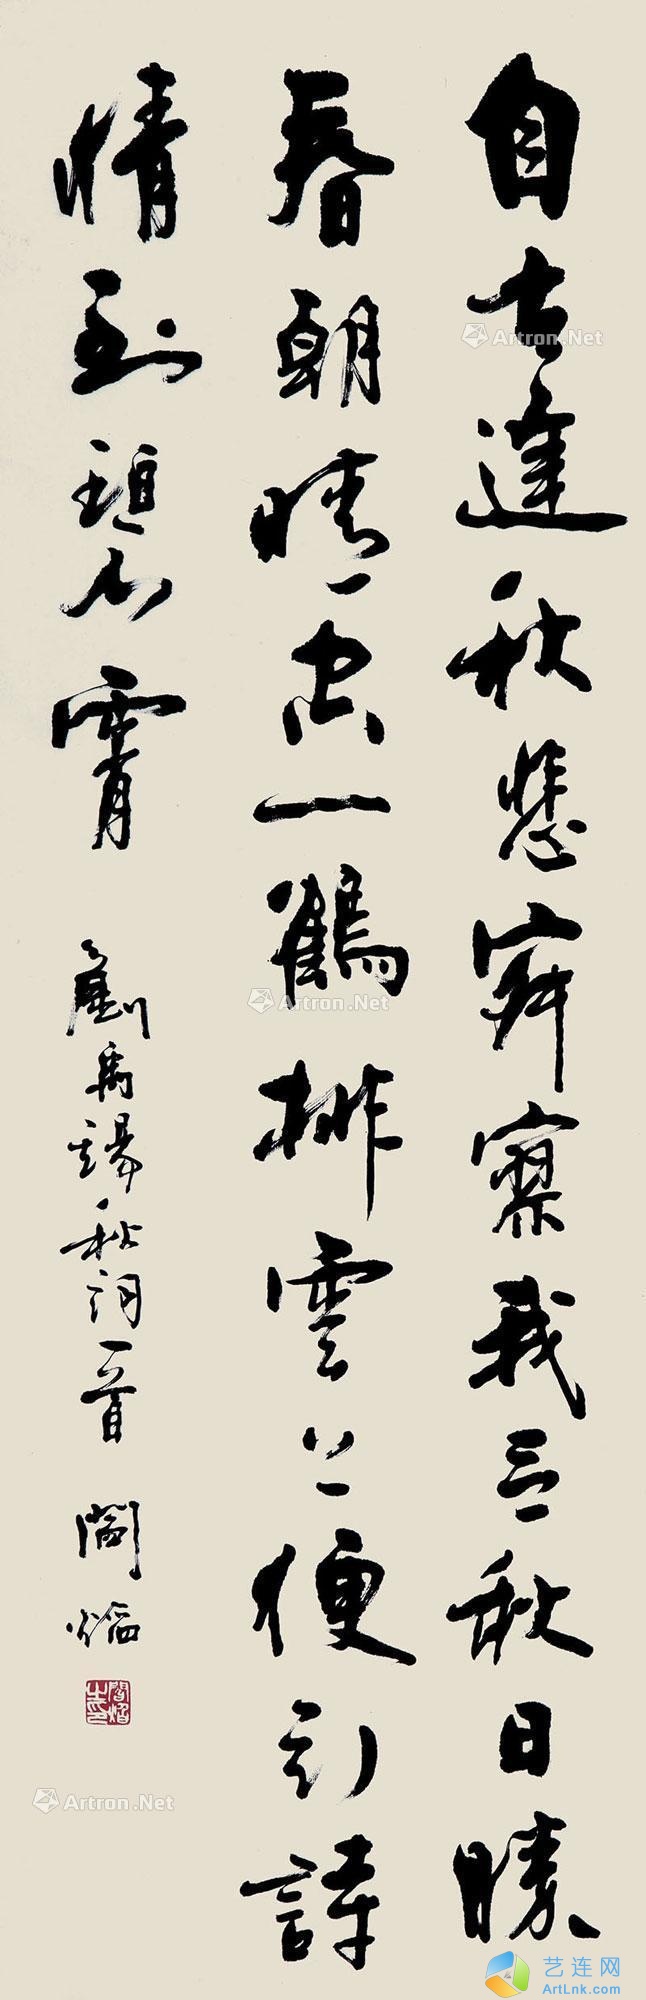 自古逢秋悲寂寥我言秋日勝
春朝晴空一鶴排雲上便引詩
情到碧霄 劉禹錫秋詞一首
Artron.Net
Artron.Net
Artron.Net
Artron.Net
艺连网
ArtLnk.com